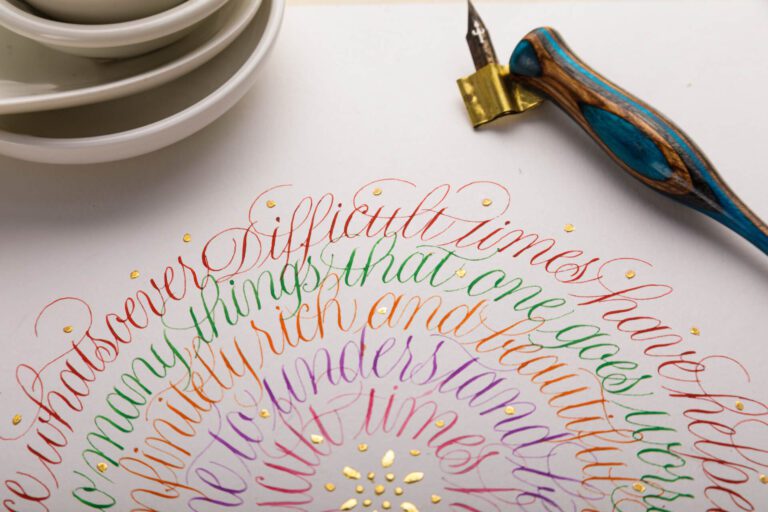 whatsoever Difficult times have helped
many things that one goes
infinitely rich and beautiful
to understand
times